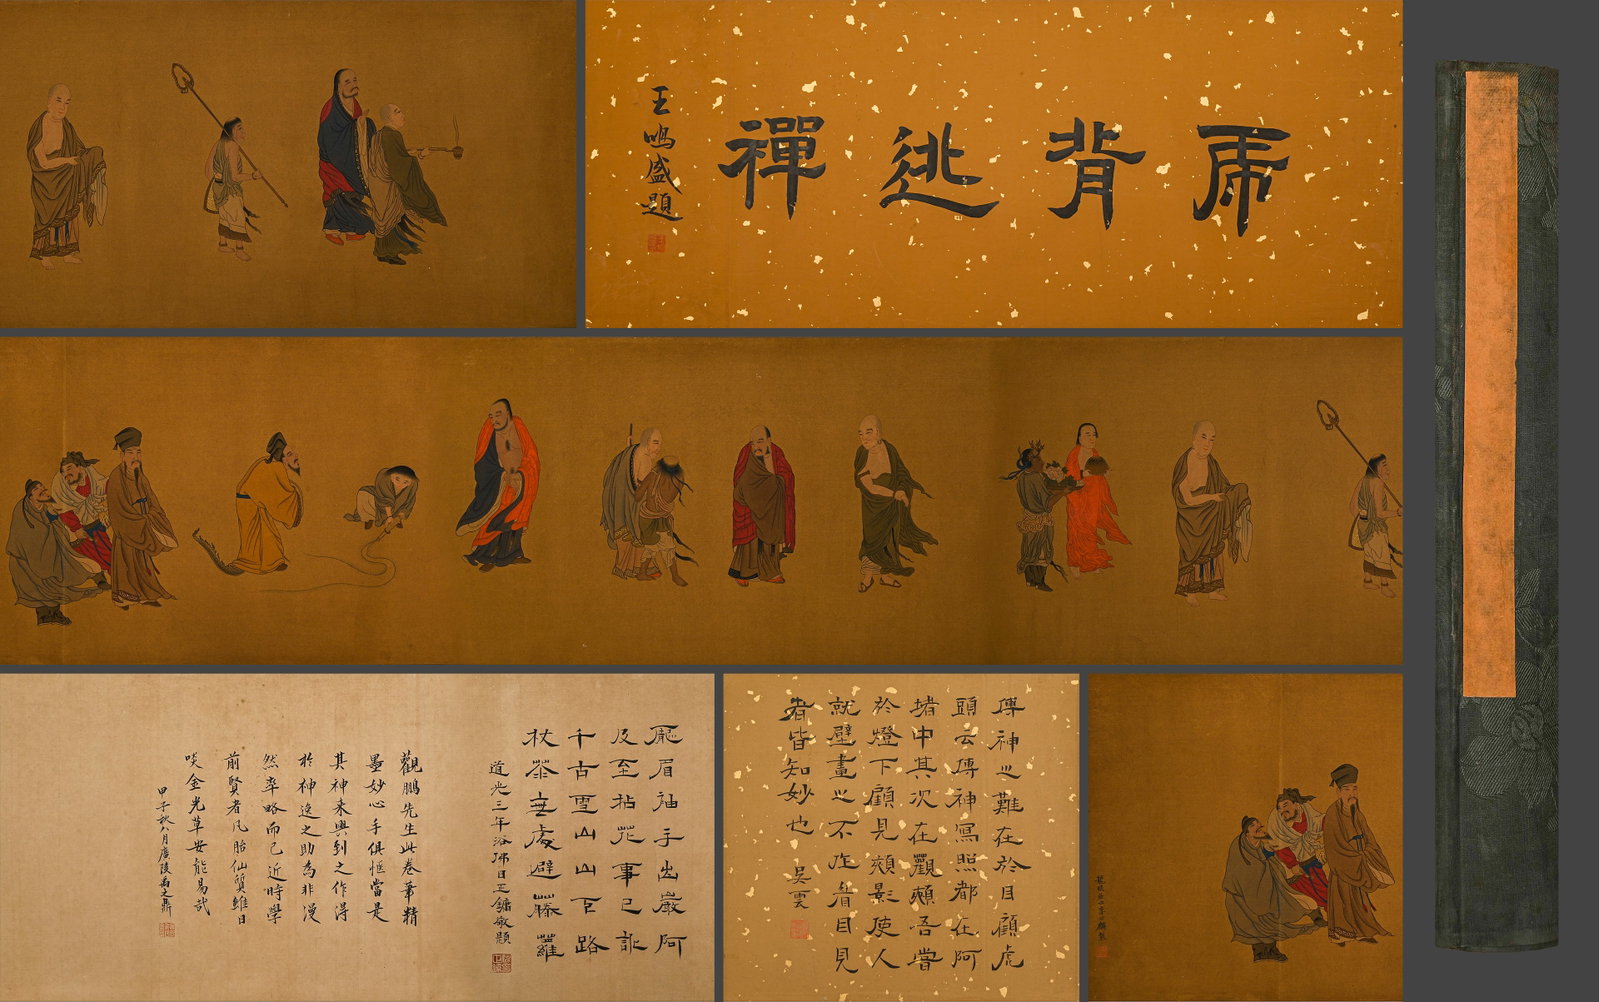 乕背逃禪
王鳴盛題
傳神之難在於目顧虎
頭云傳神寫照都在阿
堵中其次在顴頰吾嘗
於燈下顧見頰影使人
就壁畫之不作眉目見
者皆知妙也 吳雲
厖眉袖手出巖阿
及至拈花事已訛
千古雪山山下路
杖藜無處避藤蘿
道光三年浴佛日王鏞敬題
觀鵬先生此卷筆精
墨妙心手俱惬當是
其神来興到之作得
於神逸之助為非漫
然率略而已近時學
前賢者凡胎仙質雖日
啖金光草安能易哉
甲子秋八月廣陵禹之鼎